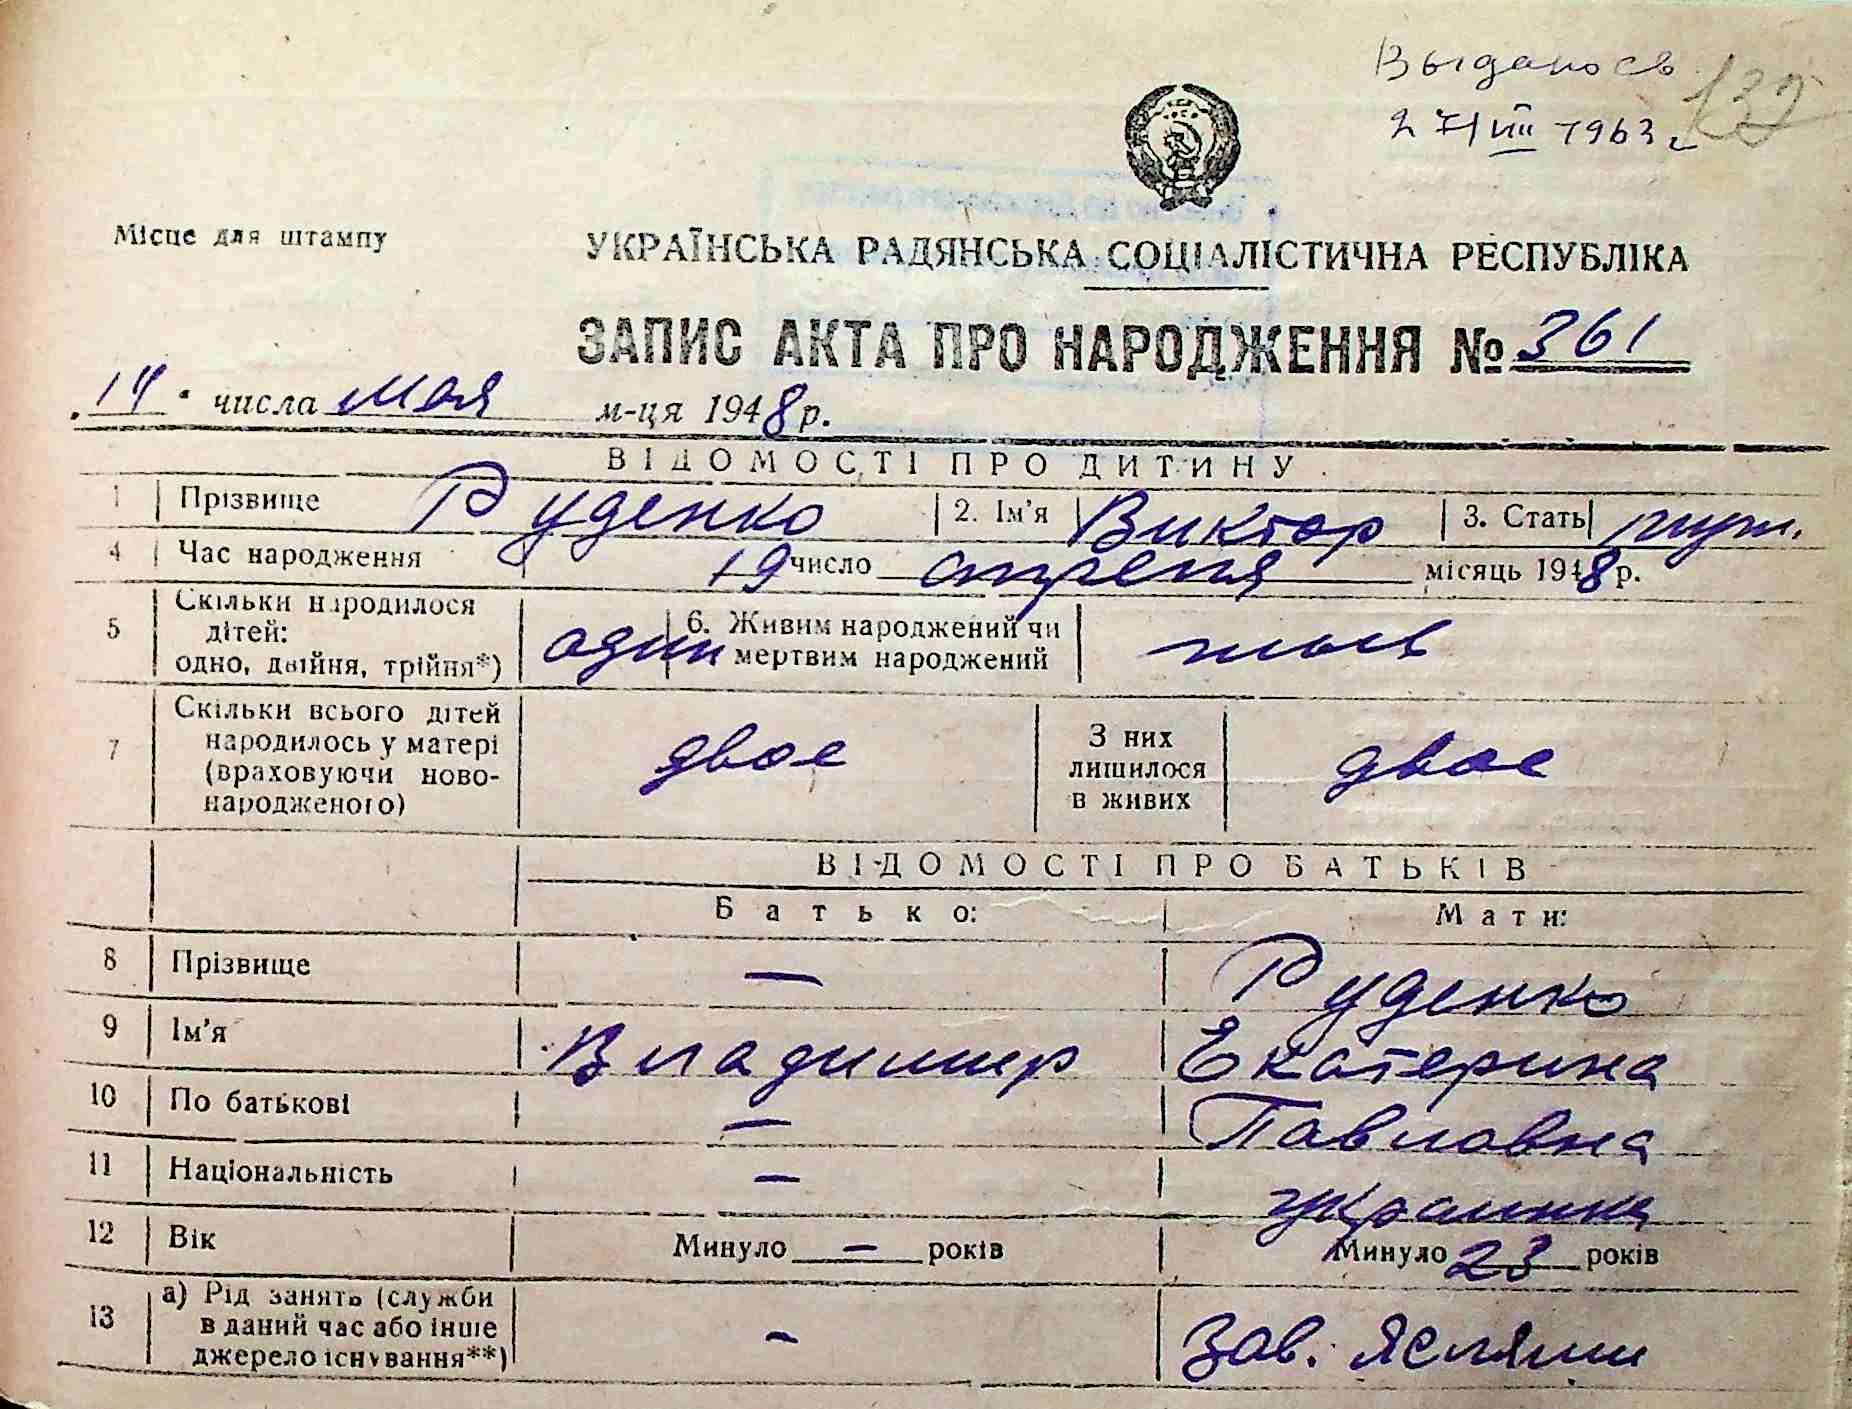 Выдалось
132
27/VIII 1963 г
Місце для штампу
УКРАЇНСЬКА РАДЯНСЬКА СОЦІАЛІСТИЧНА РЕСПУБЛІКА
ЗАПИС АКТА ПРО НАРОДЖЕННЯ № 361
14 числа мая м-ця 1948 р.
ВІДОМОСТІ ПРО ДИТИНУ
1 Прізвище Руденко 2. Ім'я Виктор 3. Стать муж.
4 Час народження 19 число апреля місяць 1948 р.
5 Скільки народилося дітей: одно, двійня, трійня*) один 6. Живим народжений чи мертвим народжений
7 Скільки всього дітей народилось у матері (враховуючи ново-народженого) двое З них лишилося в живих двое
ВІДОМОСТІ ПРО БАТЬКІВ
Батько: Мати:
8 Прізвище — Руденко
9 Ім'я Владимир Екатерина
10 По батькові — Павловна
11 Національність — украинка
12 Вік Минуло — років Минуло 23 років
13 а) Рід занять (служби в даний час або інше джерело існування**) — Зав. яслями